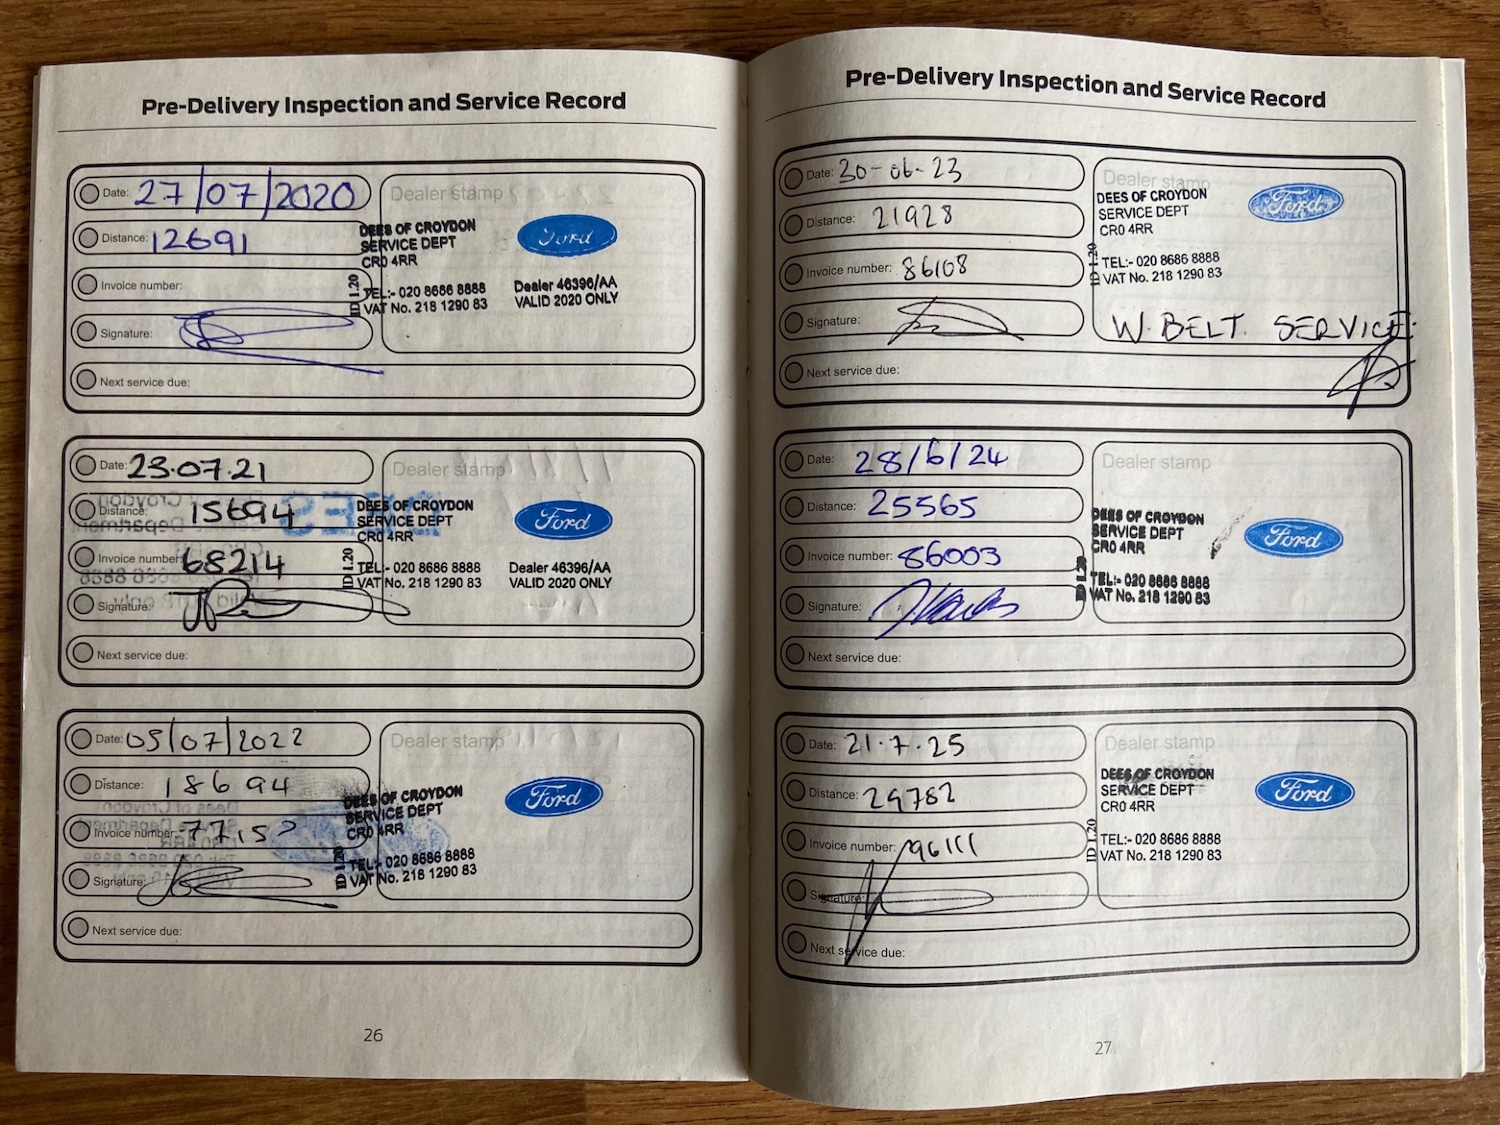 Pre-Delivery Inspection and Service Record
Date: 27/07/2020
Distance: 12691
Invoice number:
Signature:
Next service due:
Dealer stamp
DEES OF CROYDON
SERVICE DEPT
CR0 4RR
ID 1.20
TEL:- 020 8686 8888
VAT No. 218 1290 83
Ford
Dealer 46396/AA
VALID 2020 ONLY
Date: 23.07.21
Distance: 15694
Invoice number: 68214
Signature:
Next service due:
Dealer stamp
DEES OF CROYDON
SERVICE DEPT
CR0 4RR
ID 1.20
TEL:- 020 8686 8888
VAT No. 218 1290 83
Ford
Dealer 46396/AA
VALID 2020 ONLY
Date: 05/07/2022
Distance: 18694
Invoice number:
Signature:
Next service due:
Dealer stamp
DEES OF CROYDON
SERVICE DEPT
CR0 4RR
ID 1.20
TEL:- 020 8686 8888
VAT No. 218 1290 83
Ford
26
Pre-Delivery Inspection and Service Record
Date: 30-06-23
Distance: 21928
Invoice number: 86108
Signature:
Next service due:
Dealer stamp
DEES OF CROYDON
SERVICE DEPT
CR0 4RR
ID 1.20
TEL:- 020 8686 8888
VAT No. 218 1290 83
Ford
W. BELT. SERVICE.
Date: 28/6/24
Distance: 25565
Invoice number: 86003
Signature:
Next service due:
Dealer stamp
DEES OF CROYDON
SERVICE DEPT
CR0 4RR
ID 1.20
TEL:- 020 8686 8888
VAT No. 218 1290 83
Ford
Date: 21.7.25
Distance: 29782
Invoice number: 96111
Signature:
Next service due:
Dealer stamp
DEES OF CROYDON
SERVICE DEPT
CR0 4RR
ID 1.20
TEL:- 020 8686 8888
VAT No. 218 1290 83
Ford
27